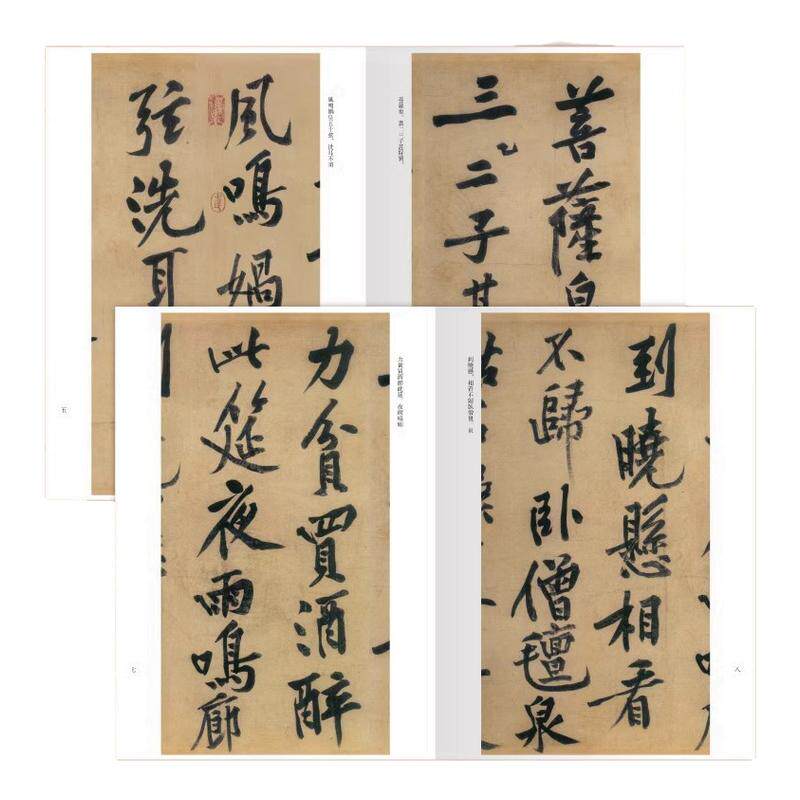 風鳴媧
弦洗耳
風鳴媧皇五十弦,洗耳不須
五
菩薩泉
三二子甚
菩薩泉。嘉二三子甚好賢,
力貧買酒醉
此筵夜雨鳴廊
力貧買酒醉此筵。夜雨鳴廊
七
到曉懸相看
不歸臥僧氈泉
到曉懸,相看不歸臥僧氈。泉
八